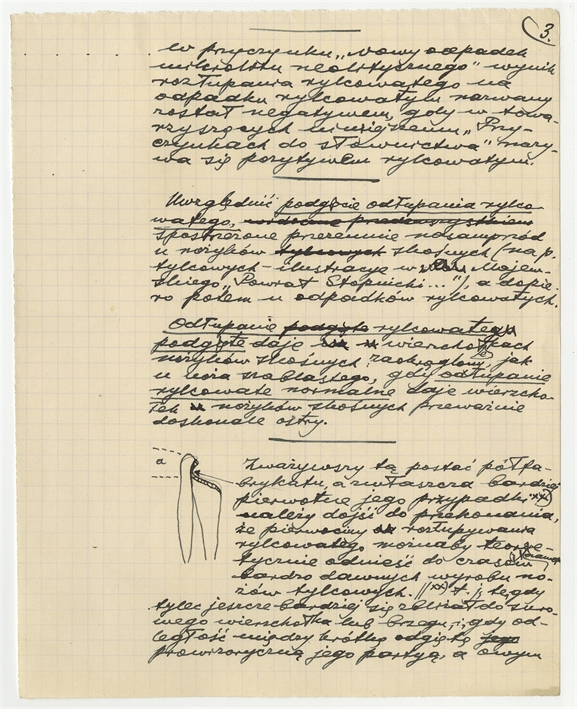 3.
W przyczynku „Nowy odpadek
mikrolitu neolitycznego" wynik
rozłupania rylcowatego na
odpadku rylcowatym nazwany
został negatywem, gdy w towa-
rzyszących niniejszemu „Przy-
czynkach do słownictwa" nazy-
wa się pozytywem rylcowatym.
Uwzględnić podgięcie odłupania rylco
watego,
spostrzeżone przezemnie nasamprzód
u nożyków tylcowych skośnych (np.
tylcowych – ilustracje w Majew-
skiego „Powiat Stopnicki..."), a dopie-
ro potem u odpadków rylcowatych.
Odłupanie podgięte rylcowate
podgięte daje wierzchołkach
nożyków skośnych zaokrąglony jak
u, gdy odłupanie
rylcowate normalne daje wierzcho-
łek nożyków skośnych przeważnie
doskonale ostry.
a
Zważywszy tą postać półfa-
brykatu, a zwłaszcza bardziej
pierwotne jego przypadki xx)
należy dojść do przekonania,
że pierwociny rozłupywania
rylcowatego możnaby teore-
tycznie odnieść do czasów
bardzo dawnych wyrobu no-
żów tylcowych. // xx) t. j. kiedy
tylec jeszcze bardziej się zbliżał do suro-
wego wierzchołka lub brzegu, i gdy od-
ległość między krótką odgiętą jego
prowizoryczną jego partyą, a owym